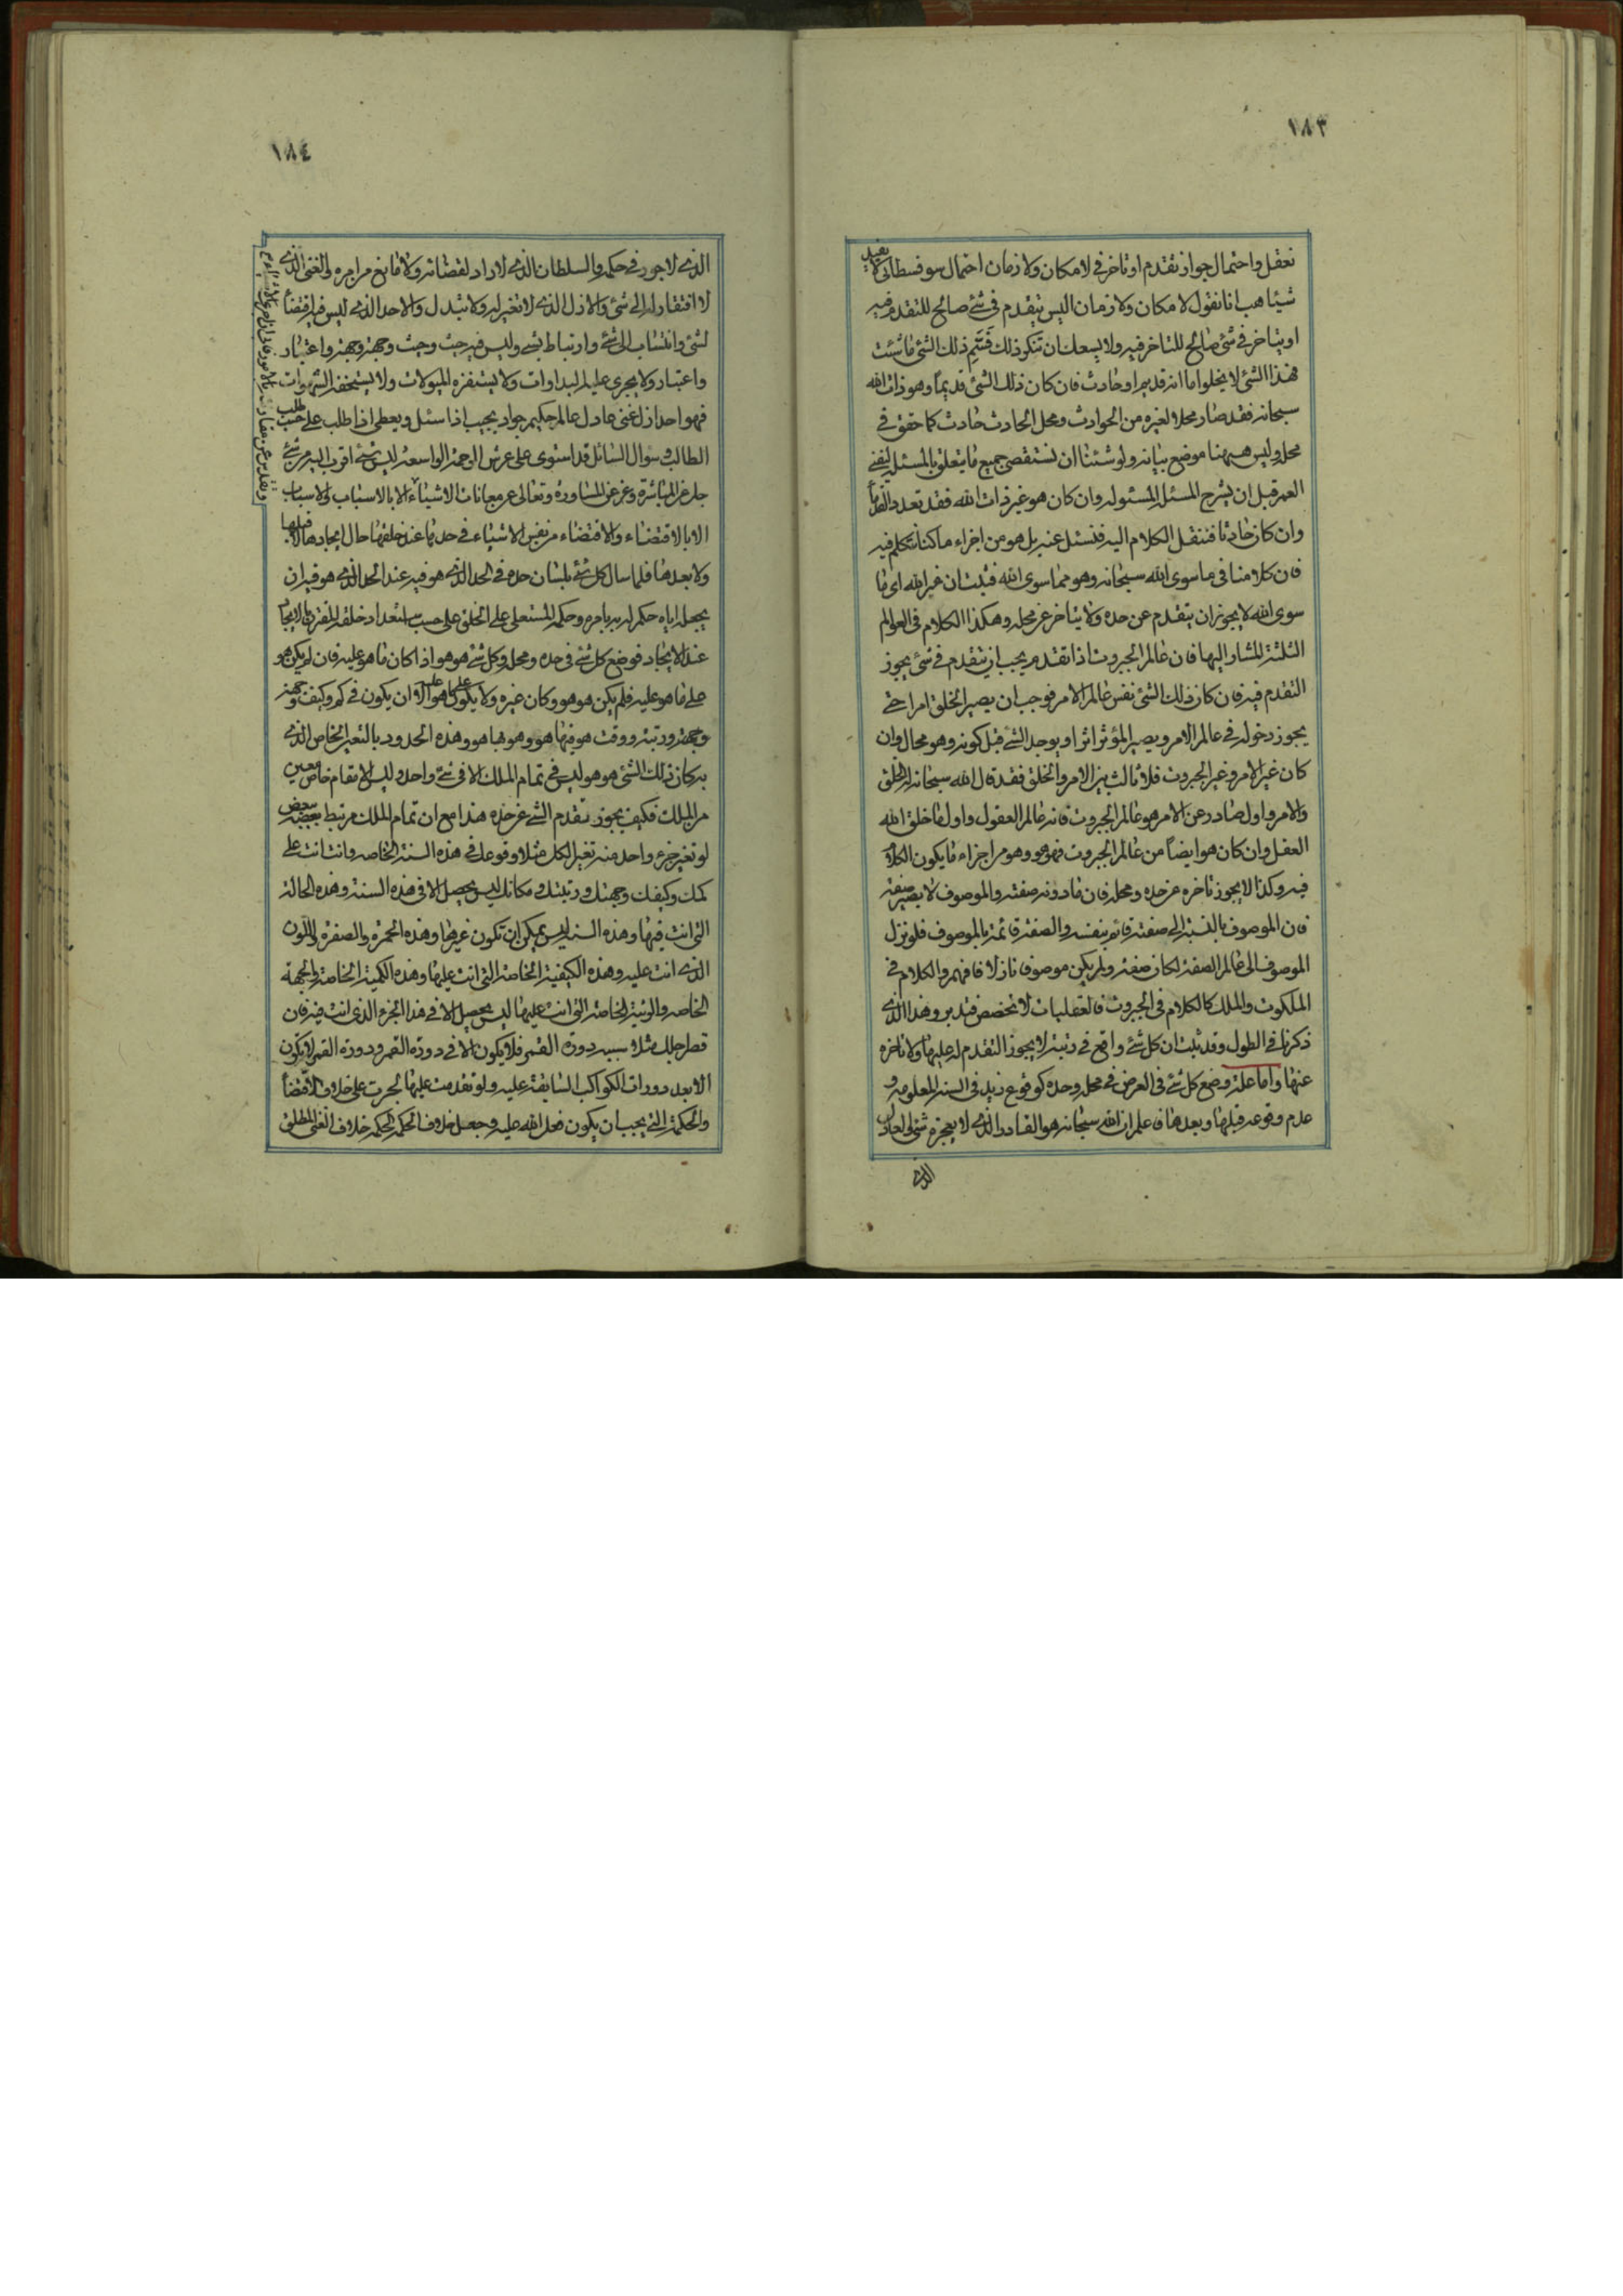 ١٨٣
نعقل واحتمال جواز تقدم او تاخر في لا مكان ولا زمان احتمال سوفسطائي لا يفيد
شيئا هب انا نقول لا مكان ولا زمان اليس يتقدم في شئ صالح للتقدم فيه
او يتاخر في شئ صالح للتاخر فيه ولا يسعك ان تنكر ذلك فسم ذلك الشئ ما شئت
فهذا الشئ لا يخلوا ما انه قديم او حادث فان كان ذلك الشئ قديماً وهو ذات الله
سبحانه فقد صار محلا لغيره من الحوادث ومحل الحادث حادث كما حقق في
محله وليس هيهنا موضع بيانه ولو شئنا ان نستقصي جميع ما يتعلق بالمسئلة ليفنى
العمر قبل ان يشرح المسئلة المسئوله وان كان هو غير ذات الله فقد تعدد القدماً
وان كان حادثا فننقل الكلام اليه فنسئل عنه بل هو من اجزاء ما كنا نتكلم فيه
فان كلامنا في ما سوى الله سبحانه وهو مما سوى الله فثبت ان غير الله اى ما
سوى الله لا يجوز ان يتقدم عن حده ولا يتاخر عن محله وهكذا الكلام في العوالم
الثلثة المشار اليها فان عالم الجبروت اذا تقدم يجب ان يتقدم في شئ يجوز
التقدم فيه فان كان ذلك الشئ نفس عالم الامر فوجب ان يصير الخلق امرا حتى
يجوز دخوله في عالم الامر ويصير المؤثر اثرا ويوجد الشئ قبل كونه وهو محال وان
كان غير الامر وغير الجبروت فلا ثالث بين الامر والخلق فقد قال الله سبحانه له الخلق
والامر واول صادر عن الامر هو عالم الجبروت فانه عالم العقول واول ما خلق الله
العقل وان كان هو ايضاً من عالم الجبروت فهو هو وهو من اجزاء ما يكون الكلام
فيه وكذا لا يجوز تاخره عن حده ومحله فان ما دونه صفته والموصوف لا يصير صفة
فان الموصوف بالنسبة الى صفته قائم بنفسه والصفة قائمة بالموصوف فلو نزل
الموصوف الى عالم الصفة لكان صفة ولم يكن موصوفا نازلا فافهم والكلام في
الملكوت والملك كالكلام في الجبروت فالعقليات لا تخصص فتدبر وهذا الذى
ذكرنا في الطول وقد ثبت ان كل شئ واقع في رتبة لا يجوز التقدم له عليها ولا تاخره
عنها واما علة وضع كل شئ في العرض في محله وحده كوقوع زيد في السنة المعلومه و
عدم وقوعه قبلها وبعدها فاعلم ان الله سبحانه هو القادر الذى لا يعجزه شئ والعادل
الذى
١٨٤
الذى لا جور في حكمه والسلطان الذى لا راد لقضائه ولا مانع من امره والغنى الذى
لا افتقار له الى شئ والازل الذى لا تغير له ولا تبدل والاحد الذى ليس فيه اقتضاً
لشئ وانتساب الى شئ وارتباط بشئ وليس فيه حيث وحيث وجهة وجهة واعتبار
واعتبار ولا يجرى عليه البداوات ولا يستفزه الميولات ولا يستخفه الشهوات
فهو احد ازل غنى عادل عالم حكيم جواد يجيب اذا سئل ويعطى اذا طلب على حسب طلب
الطالب وسؤال السائل قد استوى على عرش الرحمة الواسعة ليس شئ اقرب اليه من شئ
جل عن المباشرة وعز عن المشاورة وتعالى عن معانات الاشياء الا بالاسباب ولا اسباب
الا بالاقتضاء والاقتضاء من نفس الاشياء في حدها عند خلقها حال ايجادها لا قبلها
ولا بعدها فلما سال كل شئ بلسان حده في الحد الذى هو فيه عند الحد الذى هو فيه ان
يجعله اياه حكم له به بامره وحكمه المستعلى على الخلق على حسب استعداد خلقه المقترن بالايجاد
عند الايجاد فوضع كل شئ في حده ومحله وكل شئ هو هو اذا كان ما هو عليه فان لم يكن هو
على ما هو عليه فلم يكن هو هو وكان غيره ولا يكون على ما هو عليه الا وان يكون في كم وكيف وجهة
وجهة ورتبة ووقت هو فيها هو وهو بها هو وهذه الحدود بالتعين الخاص الذى
به كان ذلك الشئ هو هو ليس في تمام الملك الا في شئ واحد وليس له الا مقام خاص معين
من الملك فكيف يجوز تقدم الشئ عن حده هذا مع ان تمام الملك مرتبط بعضه ببعض
لو تغير جزء واحد منه تغير الكل مثلا وقوعك في هذه السنة الخاصه وانت انت على
كمك وكيفك وجهتك ورتبتك ومكانك ليس يحصل الا في هذه السنة وهذه الحالة
التى انت فيها وهذه السنة ليس يمكن ان تكون غيرها وهذه الحمرة والصفرة واللون
الذى انت عليه وهذه الكيفية الخاصة التى انت عليها وهذه الكمية الخاصة والجهة
الخاصه والرتبة الخاصة التى انت عليها ليس يحصل الا في هذا الجزء الذى انت فيه فان
قصر حبلك مثلا بسبب دورة القمر فلا يكون الا في دورة القمر ودورة القمر لا يكون
الا بعد دورات الكواكب السابقة عليه ولو تقدمت عليها لجرت على خلاف الاقتضاً
والحكمة التى يجب ان يكون فعل الله عليه وجعل خلاف الحكمة للحكيم خلاف الغنى المطلق